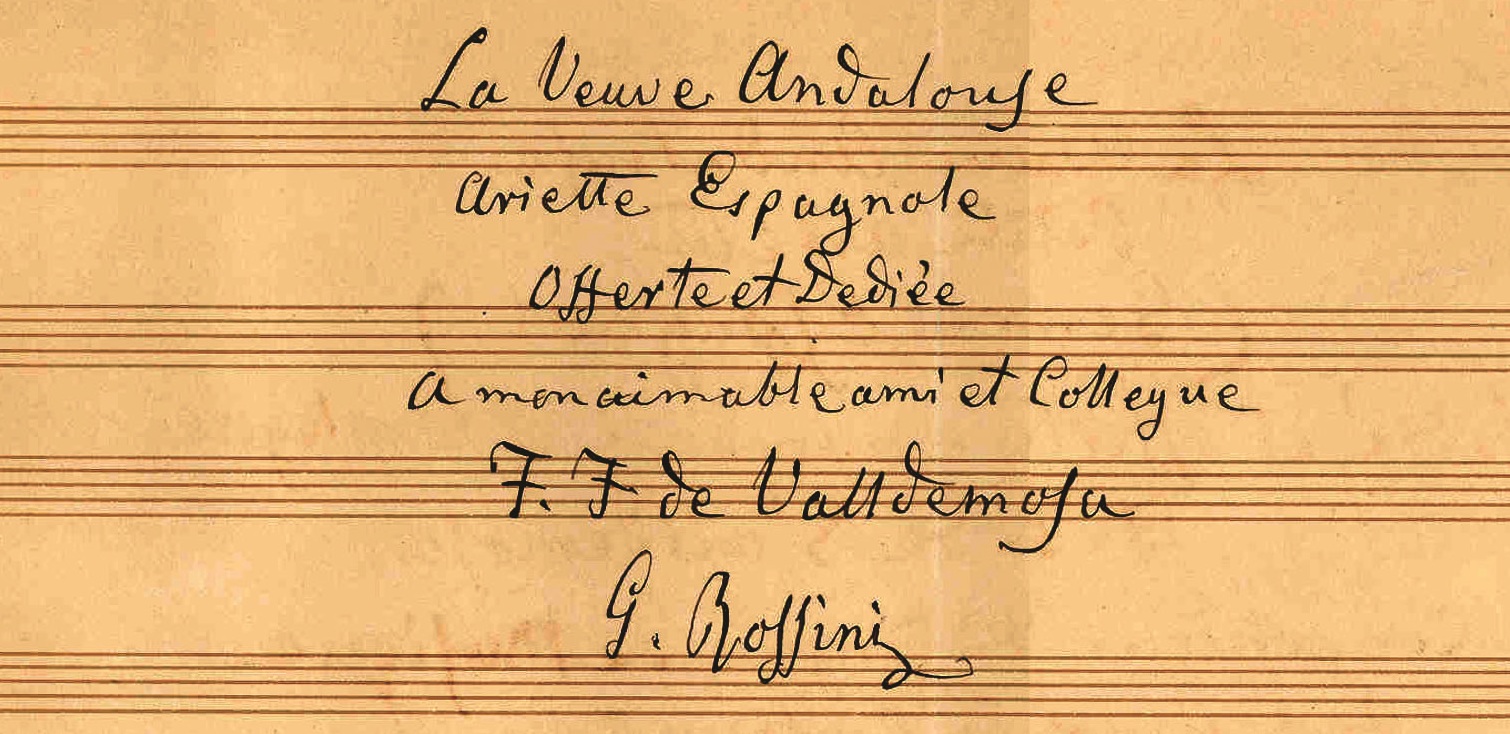 La Veuve Andalouse
Ariette Espagnole
Offerte et Dediée
A mon aimable ami et Collegue
F. F de Valldemosa
G. Rossini